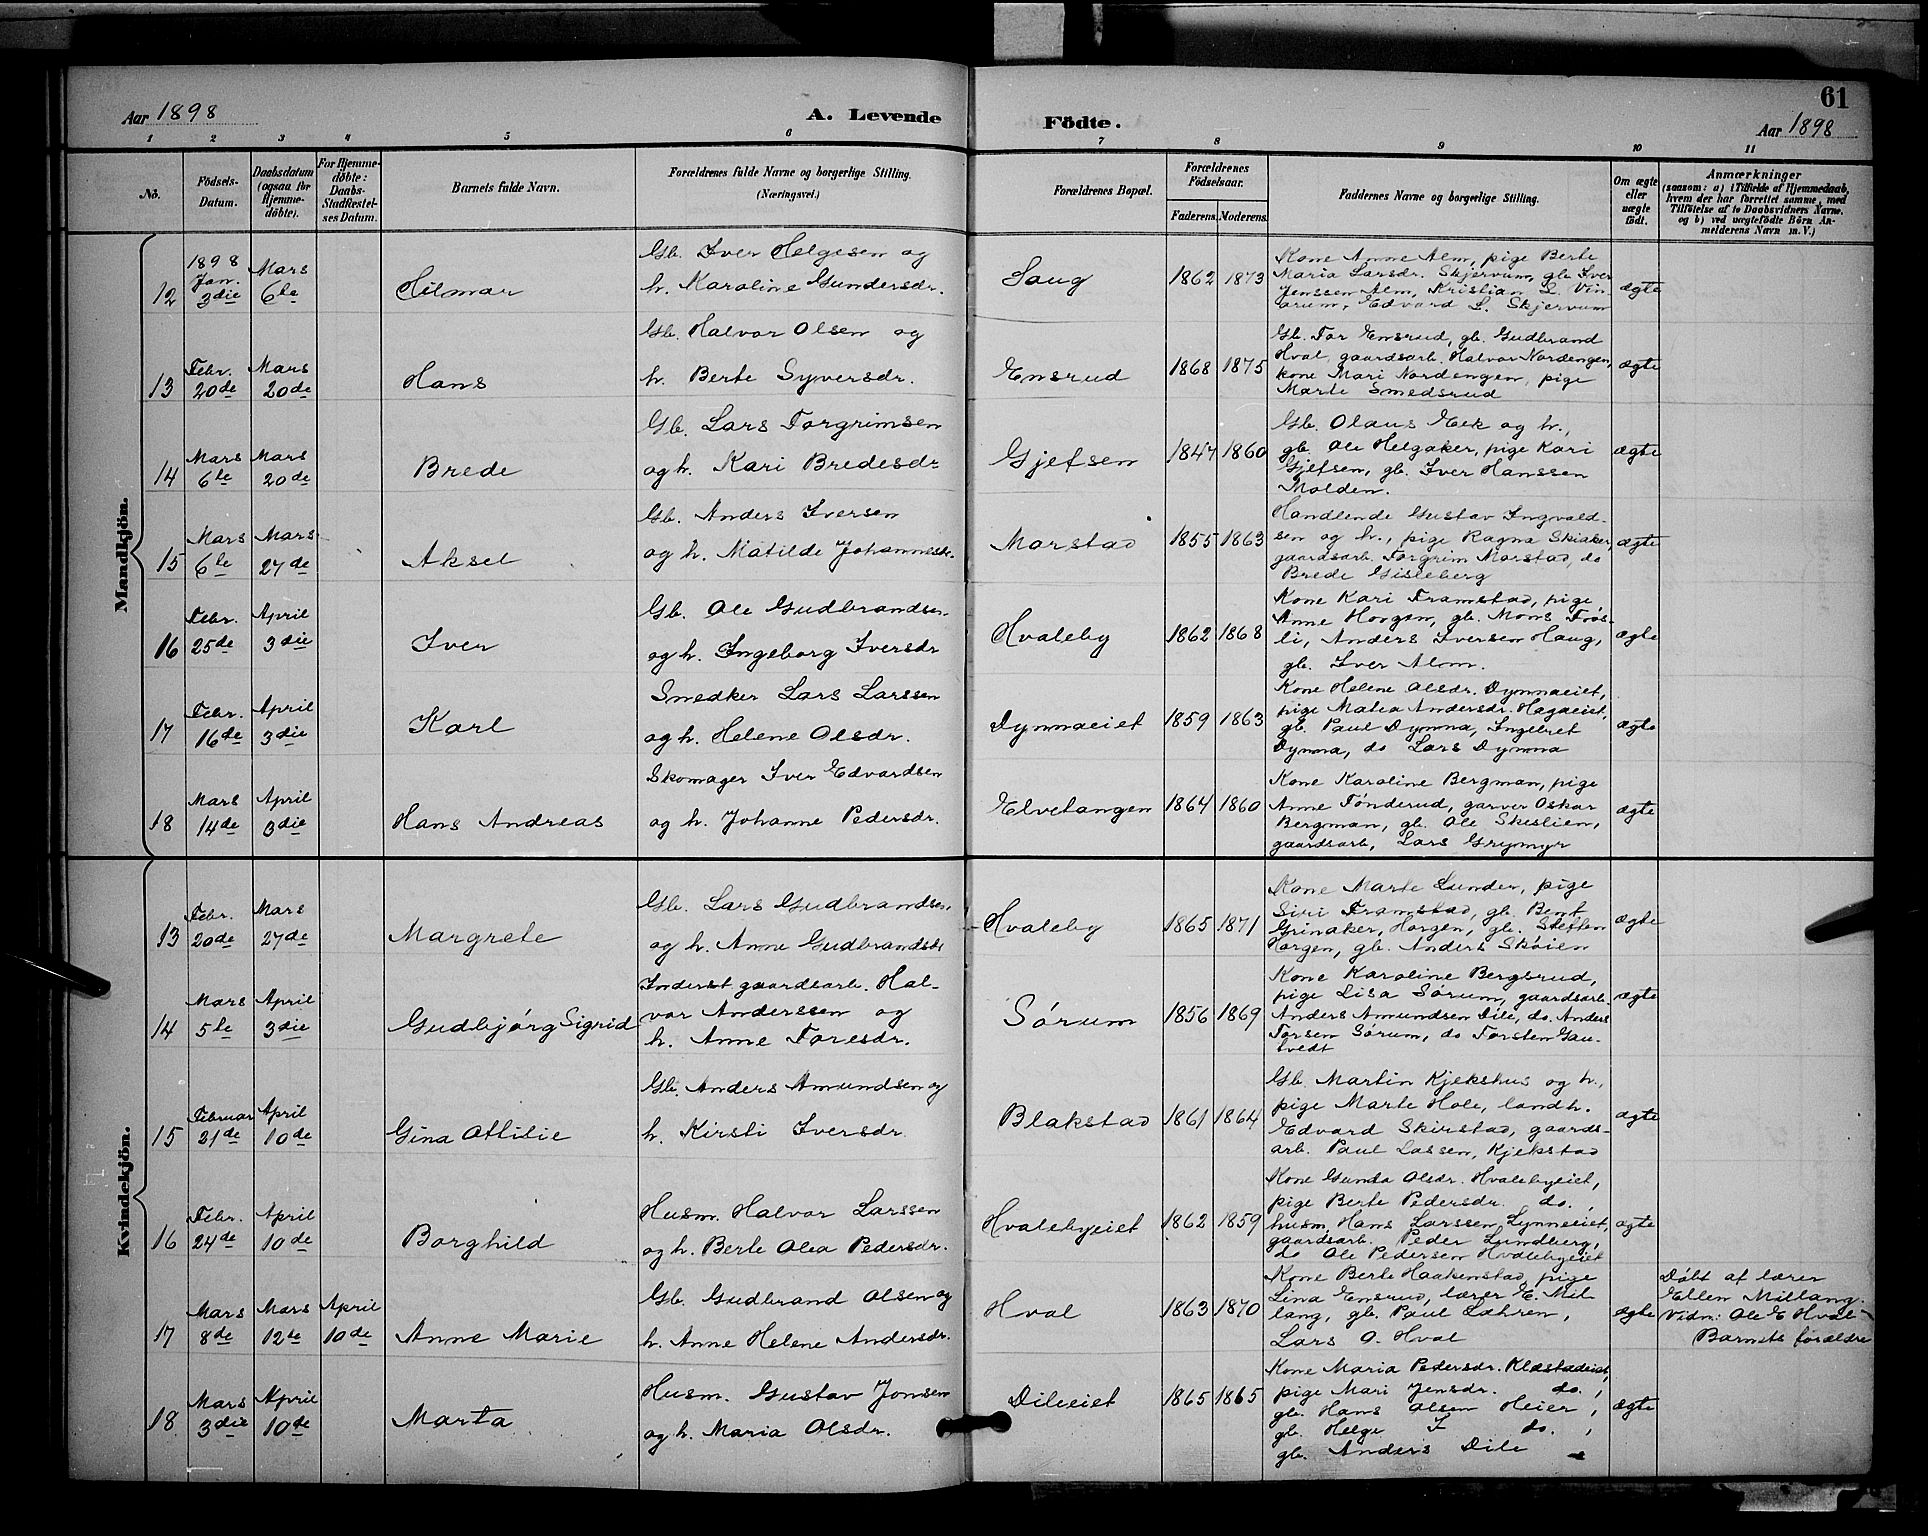 61
Aar 1898
A. Levende
Födte.
Aar 1898
1 2 3 4 5 6 7 8 9 10 11
No.
Födsels-
Datum.
Daabsdatum
(ogsaa for
Hjemme-
döbte).
For Hjemme-
döbte:
Daabs-
Stadfæstel-
ses Datum.
Barnets fulde Navn.
Forældrenes fulde Navne og borgerlige Stilling.
(Næringsvei.)
Forældrenes Bopæl.
Forældrenes
Födselsaar.
Faderens.
Moderens.
Faddernes Navne og borgerlige Stilling.
Om ægte
eller
uægte
født.
Anmærkninger
(saasom: a) i Tilfælde af Hjemmedaab,
hvem der har forrettet samme, med
Tilföielse af to Daabsvidners Navne,
og b) ved uægtefödte Börn An-
melderens Navn m. V.)
Mandkjön.
12
1898
Jan.
3die
Mars
6te
Hilmar
Gb. Iver Helgesen og
h. Karoline Gundersdr.
Haug
1862 1873
Kone Anne Alm, pige Berte
Maria Larsdr. Skjervum, gb. Iver
Jenssen Alm, Kristian L. Vin-
orum, Edvard L. Skjervum
ægte
13
Febr.
20de
Mars
20de
Hans
Gb. Halvor Olsen og
h. Berte Syversdr.
Ensrud
1868 1875
Gb. Tor Ensrud, gb. Gudbrand
Hval, gaardsarb. Halvor Nordengen,
kone Mari Nordengen, pige
Marte Smedsrud
ægte
14
Mars
6te
Mars
20de
Brede
Gb. Lars Torgrimsen
og h. Kari Bredesdr
Gjefsen
1847 1860
Gb. Olaus Eek og h.,
gb. Ole Helgaker, pige Kari
Gjefsen, gb. Iver Hanssen
Molden.
ægte
15
Mars
6te
Mars
27de
Aksel
Gb. Anders Iversen
og h. Matilde Johannesdr.
Morstad
1855 1863
Handlende Gustav Ingvald-
sen og h., pige Ragna Skiaker,
gaardsarb. Torgrim Morstad, do
Brede Gisleberg
ægte
16
Febr.
25de
April
3die
Iver
Gb. Ole Gudbrandsen
og h. Ingeborg Iversdr
Hvaleby
1862 1868
Kone Kari Framstad, pige
Anne Horgen, gb. Mons Frøs-
li, Anders Iversen Haug,
gb. Iver Alm.
ægte
17
Febr.
16de
April
3die
Karl
Smedker Lars Larssen
og h. Helene Olsdr.
Dynnaeiet
1859 1863
Kone Helene Olsdr. Dynnaeiet,
pige Matea Andersdr. Hagaeiet,
gb. Paul Dynna, Ingebret
Dynna, do Lars Dynna
ægte
18
Mars
14de
April
3die
Hans Andreas
Skomager Iver Edvardsen
og h. Johanne Pedersdr.
Elvetangen
1864 1860
Kone Karoline Bergman, pige
Anne Tønderud, garver Oskar
Bergman, gb. Ole Skeslien,
gaardsarb, Lars Grymyr
ægte
Kvindekjön.
13
Febr.
20de
Mars
27de
Margrete
Gb. Lars Gudbrandsen,
og h. Anne Gudbrandsdr
Hvaleby
1865 1871
Kone Marte Lunder, pige
Siri Framstad, gb. Bent
Grinaker, Horgen, gb. Steffen
Horgen, gb. Anders Skøien
ægte
14
Mars
5te
April
3die
Gudbjørg Sigrid
Inderst gaardsarb. Hal-
vor Anderssen og
h. Anne Toresdr.
Sørum
1856 1869
Kone Karoline Bergsrud,
pige Lisa Sørum, gaardsarb.
Anders Amundsen Dile, do. Anders
Torsen Sørum, do Torsten Gau-
tvedt
ægte
15
Februar
21de
April
10de
Gina Ottilie
Gb. Anders Amundsen og
h. Kirsti Iversdr.
Blakstad
1861 1864
Gb. Martin Kjekshus og h.,
pige Marte Hole, landh.
Edvard Skirstad, gaards-
arb. Paul Lassen, Kjekstad
ægte
16
Febr.
24de
April
10de
Borghild
Husm. Halvor Larssen
og h. Berte Olea Pedersdr.
Hvalebyeiet
1862 1859
Kone Gunda Olsdr. Hvalebyeiet,
pige Berte Pedersdr. do.,
husm. Hans Larssen Lynneeiet,
gaardsarb. Peder Lundberg,
do Ole Pedersen Hvalebyeiet
ægte
17
Mars
8de
Mars
12te
April
10de
Anne Marie
Gb. Gudbrand Olsen og
h. Anne Helene Andersdr.
Hval
1863 1870
Kone Berte Haakenstad, pige
Lina Ensrud, lærer E. Mil-
lang, gb. Paul Læhren,
Lars O. Hval
ægte
Døbt af lærer
Ellen Millang.
Vidn: Ole E. Hval -
Barnets forældre
18
Mars
3die
April
10de
Marta
Husm. Gustav Jonsen
og h. Maria Olsdr.
Dileeiet
1865 1865
Kone Maria Pedersdr. Klæstadeiet,
pige Mari Jensdr. do.,
gb. Hans Olsen Heier,
gb. Helge I do.,
gb. Anders Dile
ægte